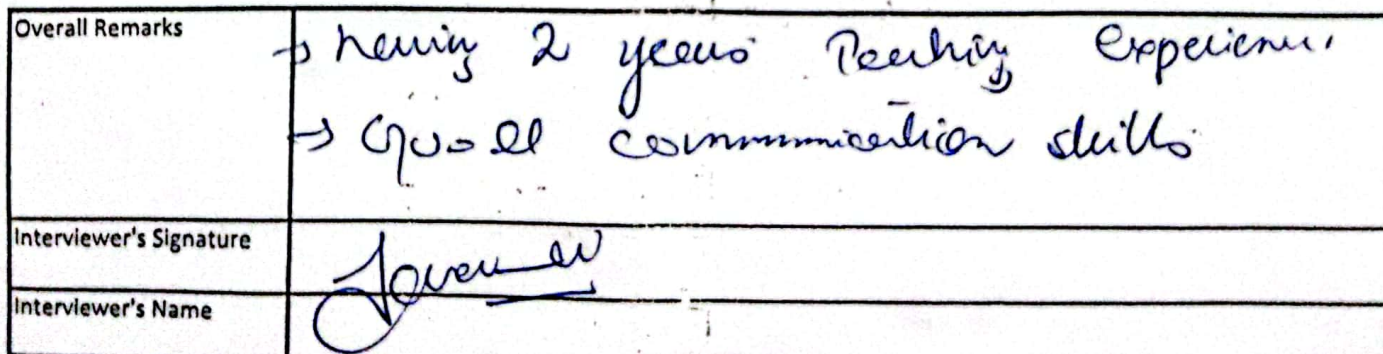 Overall Remarks
→ having 2 years Teaching Experience.
→ Good communication skills
Interviewer's Signature
Interviewer's Name